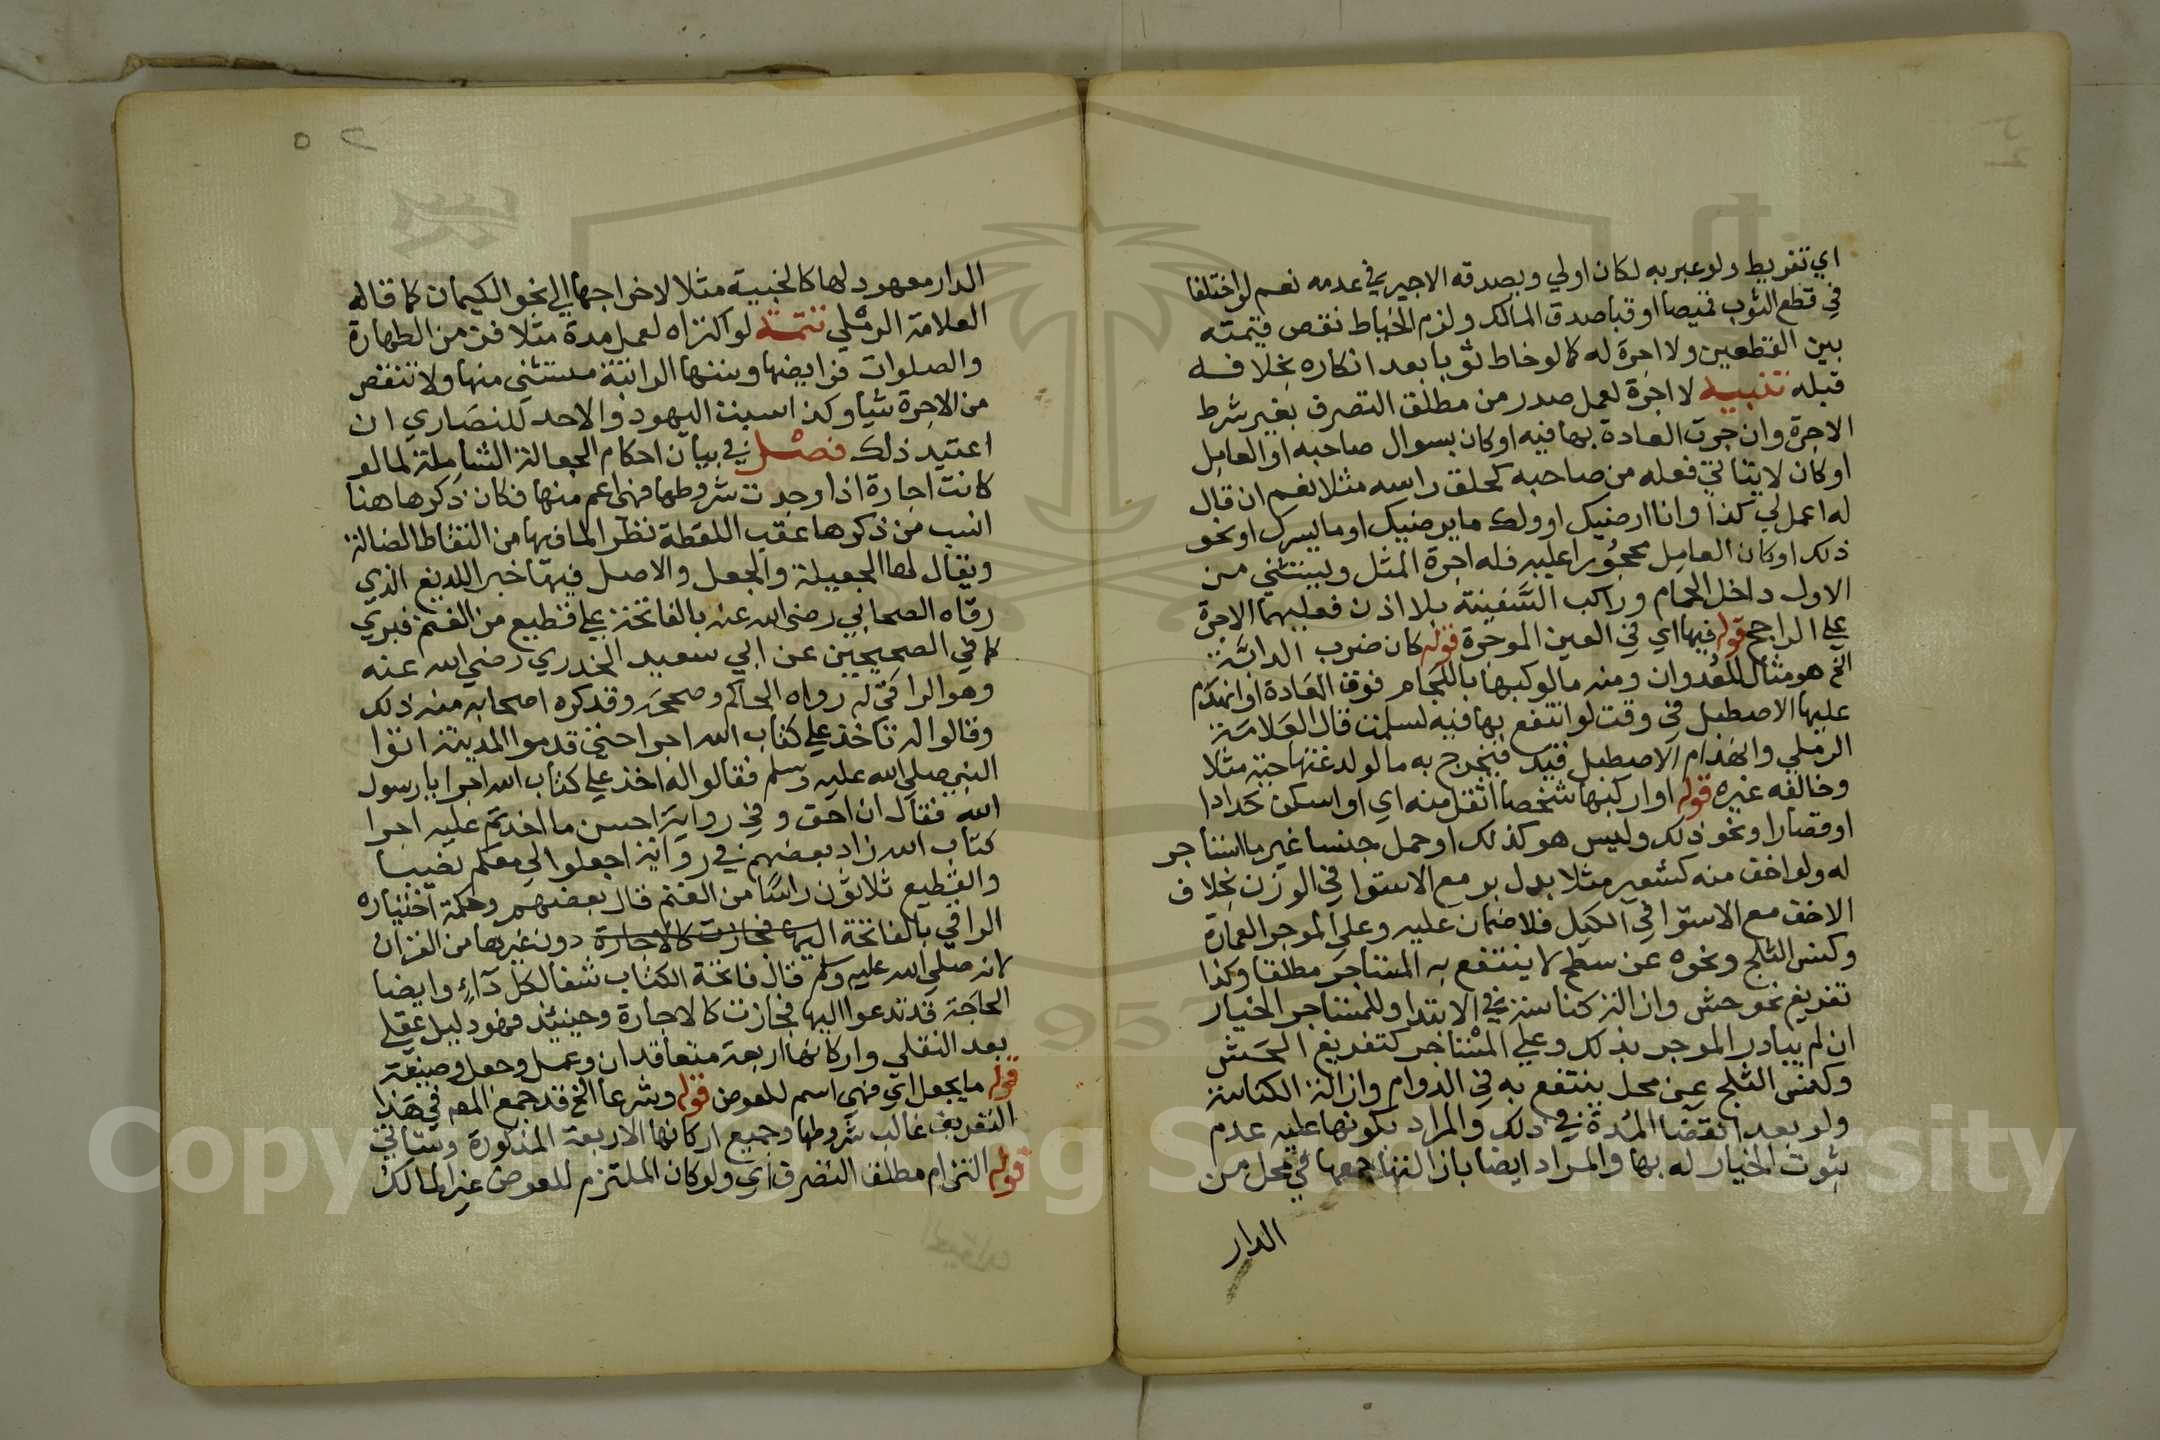 اي تفريط ولو عبر به لكان اولي ويصدقه الاجير في عدمه نعم لو اختلفا
في قطع الثوب قميصا او قبا صدق المالك ولزم الخياط نقص قيمته
بين القطعين ولا اجرة له كما لو خاط ثوبا بعد انكاره بخلافه
قبله تنبيه لا اجرة لعمل صدر من مطلق التصرف بغير شرط
الاجرة وان جرت العادة بها فيه او كان بسوال صاحبه او العامل
او كان لا يتاتي فعله من صاحبه كحلق راسه مثلا نعم ان قال
له اعمل لي كذا وانا ارضيك او ولك ما يرضيك او ما يسرك او نحو
ذلك او كان العامل محجورا عليه فله اجرة المثل ويستثني من
الاول داخل الحمام وراكب السفينة بلا اذن فعليهما الاجرة
علي الراجح قوله فيها اي في العين الموجرة قوله كان ضرب الدابة
الخ هو مثال للعدوان ومنه ما لو كبحها باللجام فوق العادة او انهدم
عليها الاصطبل في وقت لو انتفع بها فيه لسلمت قال العلامة
الرملي وانهدام الاصطبل قيد فيخرج به ما لو لدغتها حية مثلا
وخالفه غيره قوله او اركبها شخصا اثقل منه اي او اسكن حدادا
او قصارا ونحو ذلك وليس هو كذلك او حمل جنسا غير ما استاجر
له ولو اخف منه كشعير مثلا بدل بر مع الاستوا في الوزن بخلاف
الاخف مع الاستوا في الكيل فلا ضمان عليه وعلي الموجر العمارة
وكنس الثلج ونحوه عن سطح لا ينتفع به المستاجر مطلقا وكذا
تفريغ نحو حش وازالة كناسة في الابتدا وللمستاجر الخيار
ان لم يبادر الموجر بذلك وعلي المستاجر كتفريغ الحش
وكنس الثلج عن محل ينتفع به في الدوام وازالة الكناسة
ولو بعد انقضا المدة في ذلك والمراد بكونها عليه عدم
ثبوت الخيار له بها والمراد ايضا بازالتها جمعها في محل من
الدار
٢٥
الدار معهود لها كالخبية مثلا لاخراجها الي نحو الكيمان كما قاله
العلامة الرملي تتمة لو اكتراه لعمل مدة مثلا فزمن الطهارة
والصلوات فرايضها وسننها الراتبة مستثني منها ولا تنقص
من الاجرة شيا وكذا سبت اليهود والاحد للنصاري ان
اعتيد ذلك فصل في بيان احكام الجعالة الشاملة لما لو
كانت اجارة اذا وجدت شروطها فهي اعم منها فكان ذكرها هنا
انسب من ذكرها عقب اللقطة نظرا لما فيها من التقاط الضالة
ويقال لها الجعيلة والجعل والاصل فيها خبر اللديغ الذي
رقاه الصحابي رضي الله عنه بالفاتحة علي قطيع من الغنم فبري
كما في الصحيحين عن ابي سعيد الخدري رضي الله عنه
وهو الراقي له رواه الحاكم وصححه وقد كره اصحابه منه ذلك
وقالوا له تاخذ علي كتاب الله اجرا حتي قدموا المدينة اتوا
النبي صلي الله عليه وسلم فقالوا له اخذ علي كتاب الله اجرا يا رسول
الله فقال ان احق وفي رواية احسن ما اخذتم عليه اجرا
كتاب الله زاد بعضهم في رواية اجعلوا لي معكم نصيبا
والقطيع ثلاثون راسا من الغنم قال بعضهم وحكمة اختياره
الراقي بالفاتحة اليها فجازت كالاجارة دون غيرها من القران
لانه صلي الله عليه وسلم قال فاتحة الكتاب شفا لكل دآء وايضا
الحاجة قد تدعوا اليها فجازت كالاجارة وحينئذ فهو دليل عقلي
بعد النقلي واركانها اربعة متعاقدان وعمل وجعل وصيغة
قوله ما يجعل اي فهي اسم للعوض قوله وشرعا الخ قد جمع المص في هذا
التعريف غالب شروطها وجميع اركانها الاربعة المذكورة وستاتي
قوله التزام مطلق التصرف اي ولو كان الملتزم للعوض غير المالك